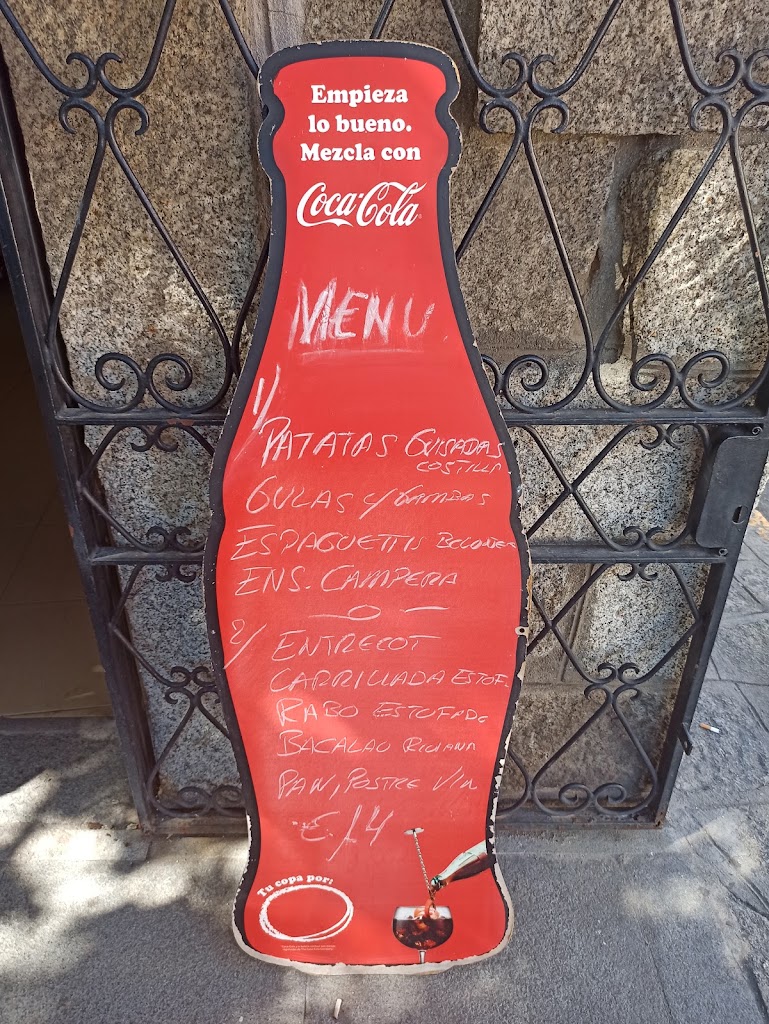 Empieza
lo bueno.
Mezcla con
Coca-Cola
MENU
1/
PATATAS GUISADAS
COSTILLA.
GULAS Y GAMBAS
ESPAGUETTIS
ENS. CAMPERA
2/ ENTRECOT
CARRILLADA ESTOF.
RABO ESTOFADO
BACALAO RIOJANA
PAN, POSTRE VIN
€ 14
Tu copa por: